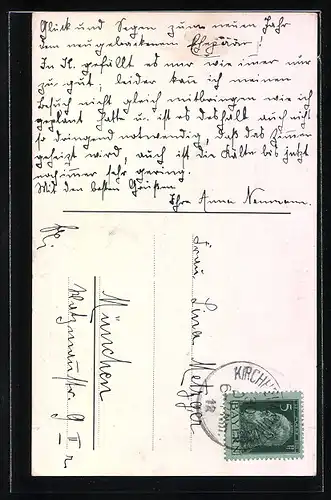 Glück und Segen zum neuen Jahr
dem neugebackenen Ehepaar!
In gefällt es mir wie immer nur
zu gut; leider kann ich meinen
Besuch nicht gleich mitbringen wie ich
geplant hatte u. ist es deshalb auch nicht
so dringend notwendig, daß das Zimmer
geheizt wird, auch ist die Kälte bis jetzt
noch immer sehr gering.
Mit den besten Grüßen
Ihre Anna Neumann.
Frau Lina Metzger
München
9 II r
KIRCHH
12
5
BAYERN